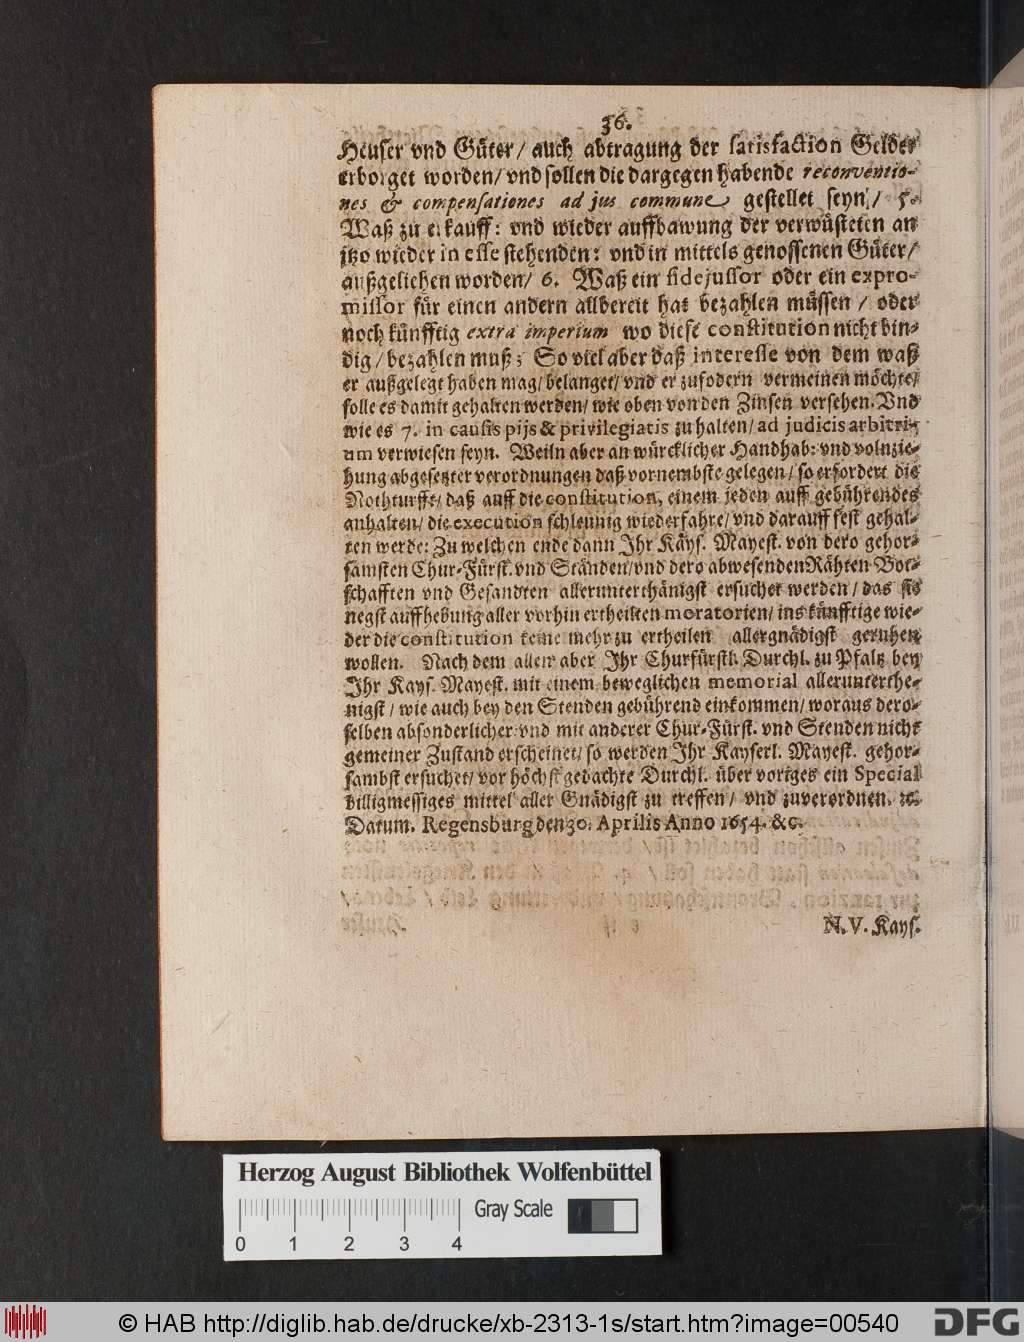 36.
Heuser vnd Güter/ auch abtragung der satisfaction Gelder
erborget worden/ vnd sollen die dargegen habende reconventio-
nes & compensationes ad jus commune gestellet seyn/ 5.
Waß zu erkauff: vnd wieder auffbawung der verwüsteten an
itzo wieder in esse stehenden: vnd in mittels genossenen Güter/
außgeliehen worden/ 6. Waß ein fidejussor oder ein expro-
missor für einen andern allbereit hat bezahlen müssen / oder
noch künfftig extra imperium wo diese constitution nicht bin-
dig / bezahlen muß; So viel aber daß interesse von dem waß
er außgelegt haben mag/ belanget/ vnd er zufodern vermeinen möchte/
solle es damit gehalten werden/ wie oben von den Zinsen versehen. Vnd
wie es 7. in causis pijs & privilegiatis zu halten/ ad judicis arbitri-
um verwiesen seyn. Weiln aber an würcklicher Handhab: vnd volnzie-
hung abgesetzter verordnungen daß vornembste gelegen/ so erfordert die
Nothturfft/ daß auff die constitution, einem jeden auff gebührendes
anhalten/ die execution schleunig wiederfahre/ vnd darauff fest gehal-
ten werde: Zu welchen ende dann Ihr Käys. Mayest. von dero gehor-
samsten Chur-Fürst. vnd Ständen/ vnd dero abwesenden Rähten Bot-
schafften vnd Gesandten allerunterthänigst ersuchet werden / das sie
negst auffhebung aller vorhin ertheilten moratorien/ ins künfftige wie-
der die constitution keine mehr zu ertheilen allergnädigst geruhen
wollen. Nach dem allem aber Ihr Churfürstl. Durchl. zu Pfaltz bey
Ihr Kays. Mayest. mit einem beweglichen memorial allerunterthe-
nigst / wie auch bey den Stenden gebührend einkommen/ woraus dero-
selben absonderlicher: vnd mit anderer Chur-Fürst. vnd Stenden nicht
gemeiner Zustand erscheinet/ so werden Ihr Kayserl. Mayest. gehor-
sambst ersuchet/ vor höchstgedachte Durchl. über voriges ein Special
billigmessiges mittel aller Gnädigst zu treffen/ vnd zuverordnen. ꝛc.
Datum. Regensburg den 30. Aprilis Anno 1654. &c.
N. V. Kays.
Herzog August Bibliothek Wolfenbüttel
Gray Scale
0 1 2 3 4
© HAB http://diglib.hab.de/drucke/xb-2313-1s/start.htm?image=00540
DFG